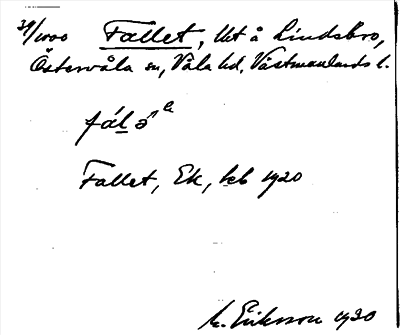 31/1000 Fallet, lht å Lindsbro,
Östervåla sn, Våla hd, Västmanlands l.
fál ə̀ e
Fallet, Ek, kb 1920
M. Eriksson 1930